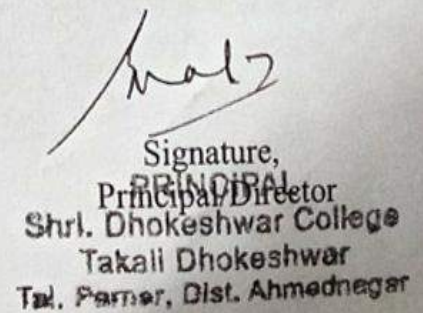 Signature,
Principal/Director
PRINCIPAL
Shri. Dhokeshwar College
Takali Dhokeshwar
Tal. Parner, Dist. Ahmednagar